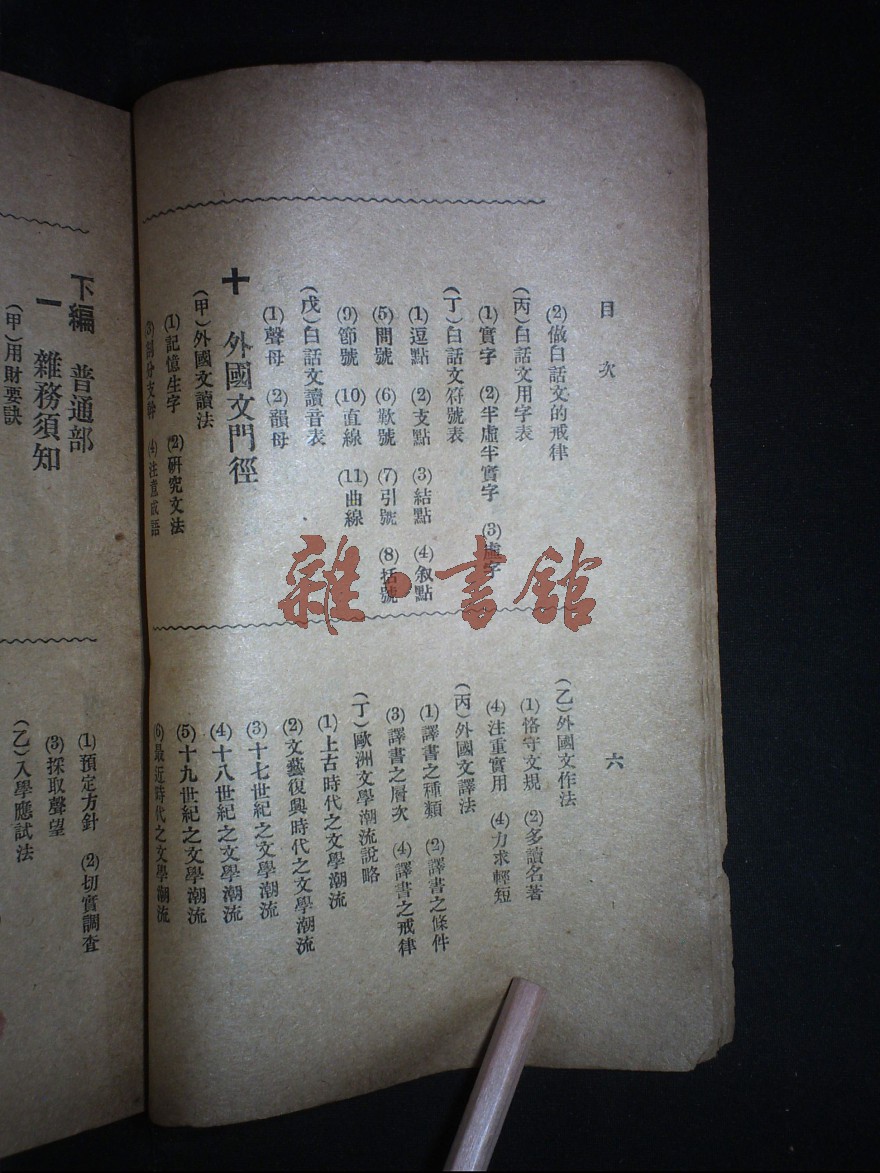 目次
六
(2)做白話文的戒律
(丙)白話文用字表
(1)實字 (2)半虛半實字 (3)虛字
(丁)白話文符號表
(1)逗點 (2)支點 (3)結點 (4)敘點
(5)問號 (6)歎號 (7)引號 (8)括號
(9)節號 (10)直線 (11)曲線
(戊)白話文讀音表
(1)聲母 (2)韻母
十 外國文門徑
(甲)外國文讀法
(1)記憶生字 (2)研究文法
(3)剖分支幹 (4)注意成語
(乙)外國文作法
(1)恪守文規 (2)多讀名著
(4)注重實用 (4)力求輕短
(丙)外國文譯法
(1)譯書之種類 (2)譯書之條件
(3)譯書之層次 (4)譯書之戒律
(丁)歐洲文學潮流說略
(1)上古時代之文學潮流
(2)文藝復興時代之文學潮流
(3)十七世紀之文學潮流
(4)十八世紀之文學潮流
(5)十九世紀之文學潮流
(6)最近時代之文學潮流
下編 普通部
一 雜務須知
(甲)用財要訣
(1)預定方針 (2)切實調查
(3)採取聲望
(乙)入學應試法
雜書館